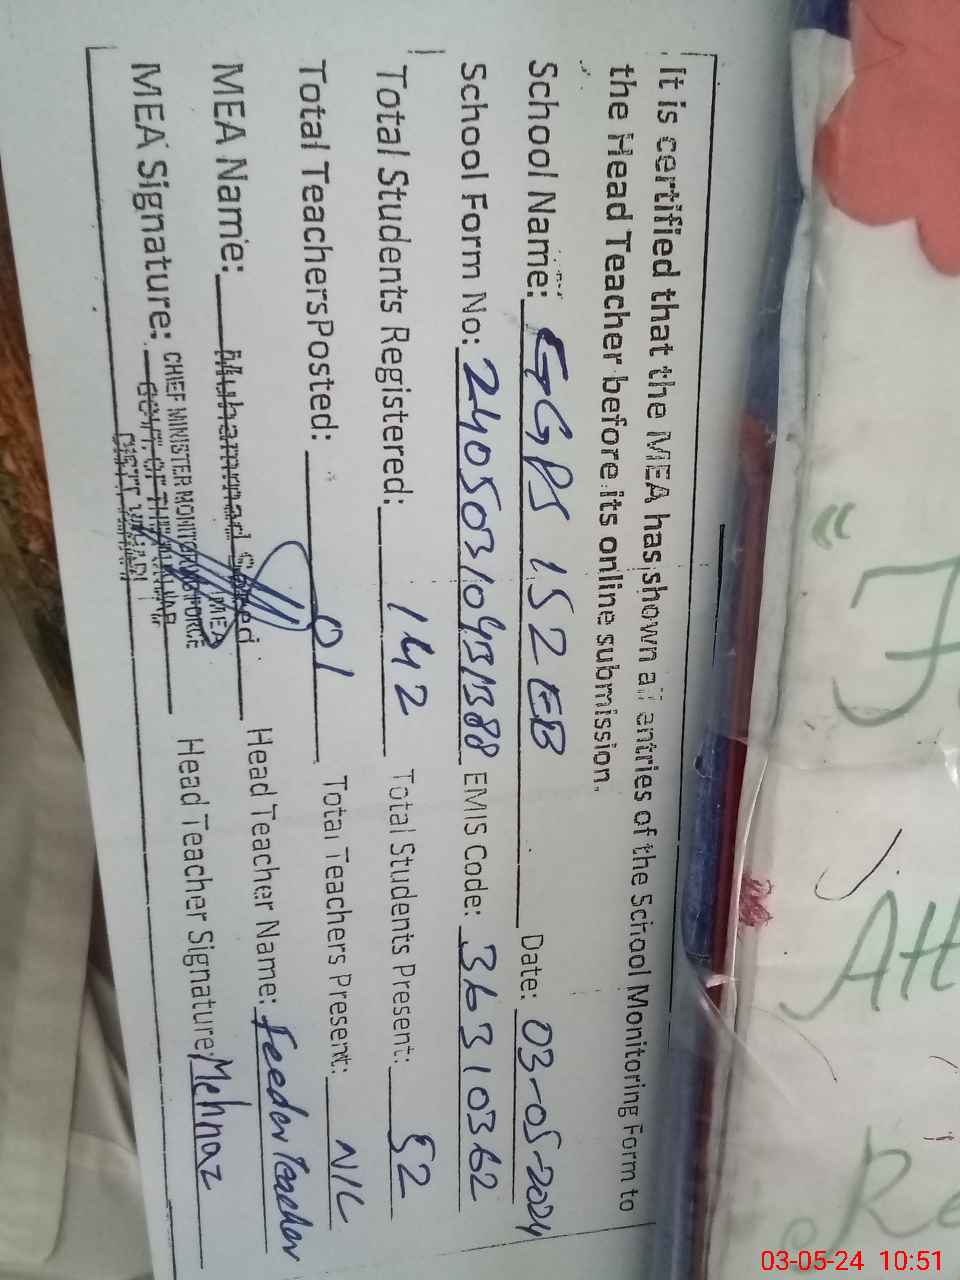 It is certified that the MEA has shown all entries of the School Monitoring Form to
the Head Teacher before its online submission.
School Name: GGPS 152 EB Date: 03-05-2024
School Form No: 2405031093388 EMIS Code: 36310362
Total Students Registered: 142 Total Students Present: 52
Total Teachers Posted: 01 Total Teachers Present: NIL
MEA Name: Muhammad Saeed Head Teacher Name: Feeder Teacher
MEA Signature: Head Teacher Signature: Mehnaz
MEA
CHIEF MINISTER MONITORING FORCE
GOVT. OF THE PUNJAB
DISTT. VEHARI
Re
03-05-24 10:51